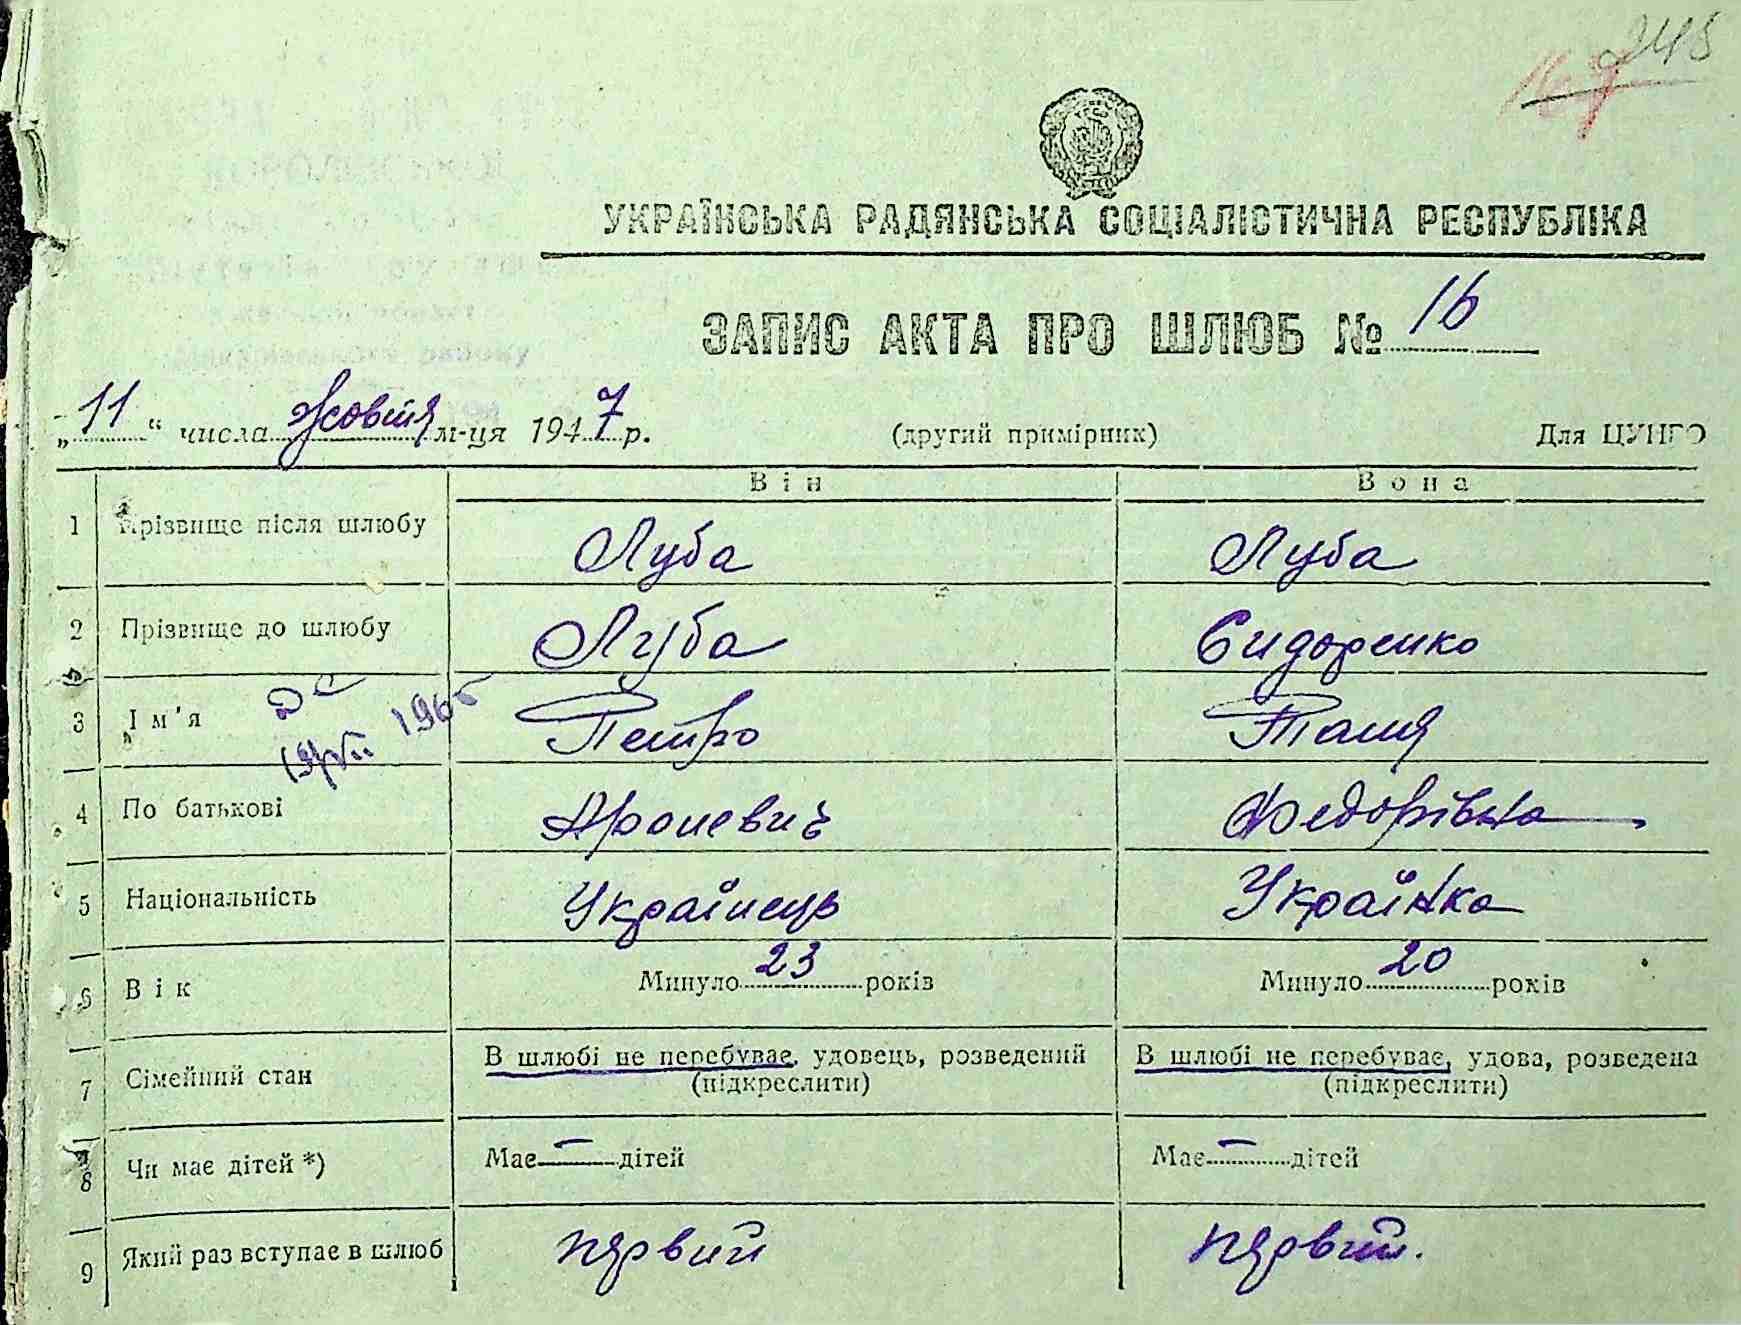 245
167
УКРАЇНСЬКА РАДЯНСЬКА СОЦІАЛІСТИЧНА РЕСПУБЛІКА
ЗАПИС АКТА ПРО ШЛЮБ № 16
„11“ числа Жовтня м-ця 1947 р. (другий примірник) Для ЦУНГО
Він Вона
1 Прізвище після шлюбу Луба Луба
2 Прізвище до шлюбу Луба Сидоренко
3 Ім'я 1965 Петро Таня
4 По батькові Яроневич Федорівна
5 Національність Українець Українка
6 Вік Минуло 23 років Минуло 20 років
7 Сімейний стан В шлюбі не перебуває, удовець, розведений В шлюбі не перебуває, удова, розведена
(підкреслити) (підкреслити)
8 Чи має дітей *) Має — дітей Має — дітей
9 Який раз вступає в шлюб первий первий.